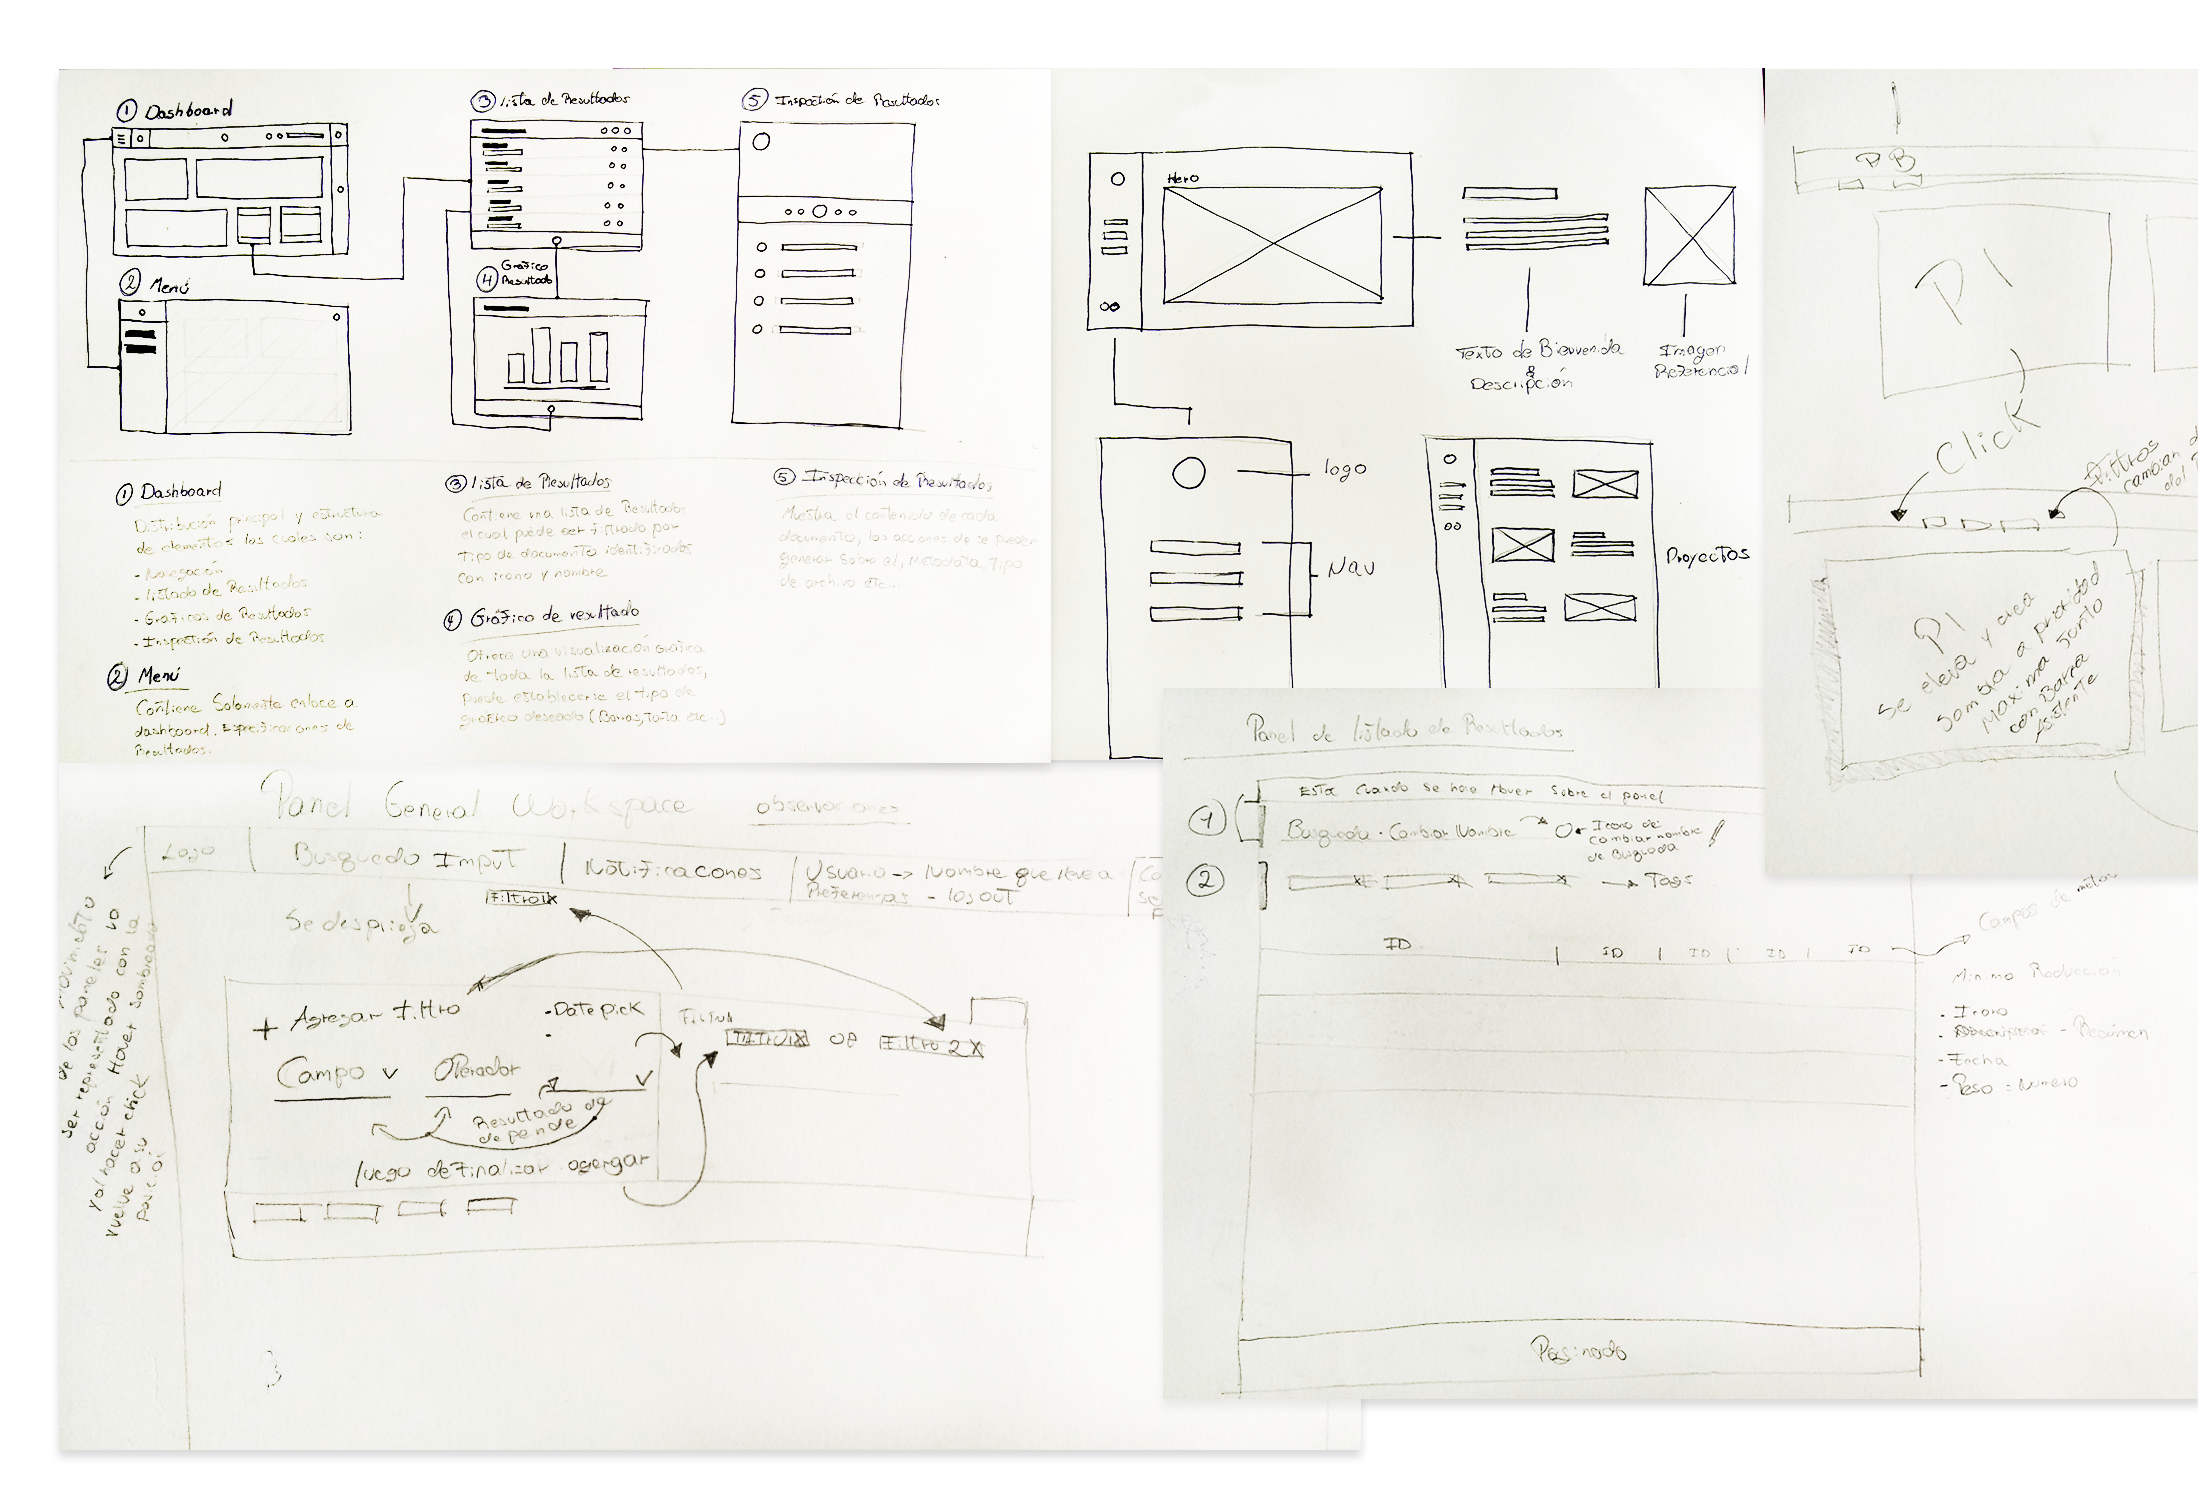 ① Dashboard
② Menú
③ Lista de Resultados
④ Gráfico
Resultado
⑤ Inspección de Resultados
① Dashboard
Distribución principal y estructura
de elementos los cuales son:
- Navegación
- Listado de Resultados
- Gráficos de Resultados
- Inspección de Resultados
② Menú
Contiene Solamente enlace a
dashboard. Especificaciones de
Resultados.
③ Lista de Resultados
Contiene una lista de Resultados
el cual puede ser filtrado por
tipo de documento identificados
con icono y nombre
④ Gráfico de resultado
Ofrece una visualización Gráfica
de toda la lista de resultados,
puede establecerse el tipo de
gráfico deseado (Barras, Torta etc...)
⑤ Inspección de Resultados
Mostra el contenido de cada
documento, las acciones de se pueden
generar sobre el, Metadata, Tipo
de archivo etc...
Hero
Texto de Bienvenida
&
Descripción
Imagen
Referencial
logo
Nav
Proyectos
P B
P1
Click
Filtros
cambian
del
P1
Se eleva y crea
Sombra a profundidad
Maxima Junto
con Barra
Asistente
Panel General Workspace observaciones
Logo
Busquedo Imput
Notificacones
Usuario -> Nombre que lleva a
Preferencias - logout
Co
Se
P
Filtro1X
Se despliega
+ Agregar Filtro
- Datepick
-
Campo v
Operador
Resultado de
depende
luego de Finalizar agergar
Filtro1X OR Filtro 2 X
Movimiento
de los paneles va
ser representado con la
acción Hover Sombreado
y al hacer click
vuelve a su
posición
Panel de Listado de Resultados
① Esta Cuando se hace Hover Sobre el panel
Busqueda - Cambiar Nombre
Icono de
Cambiar nombre
de Busqueda
② Tags
ID | ID | ID | ID | ID
Campos de metad
Minimo Producción
- Icono
- Descripcion - Resumen
- Fecha
- Peso = Numero
Paginado